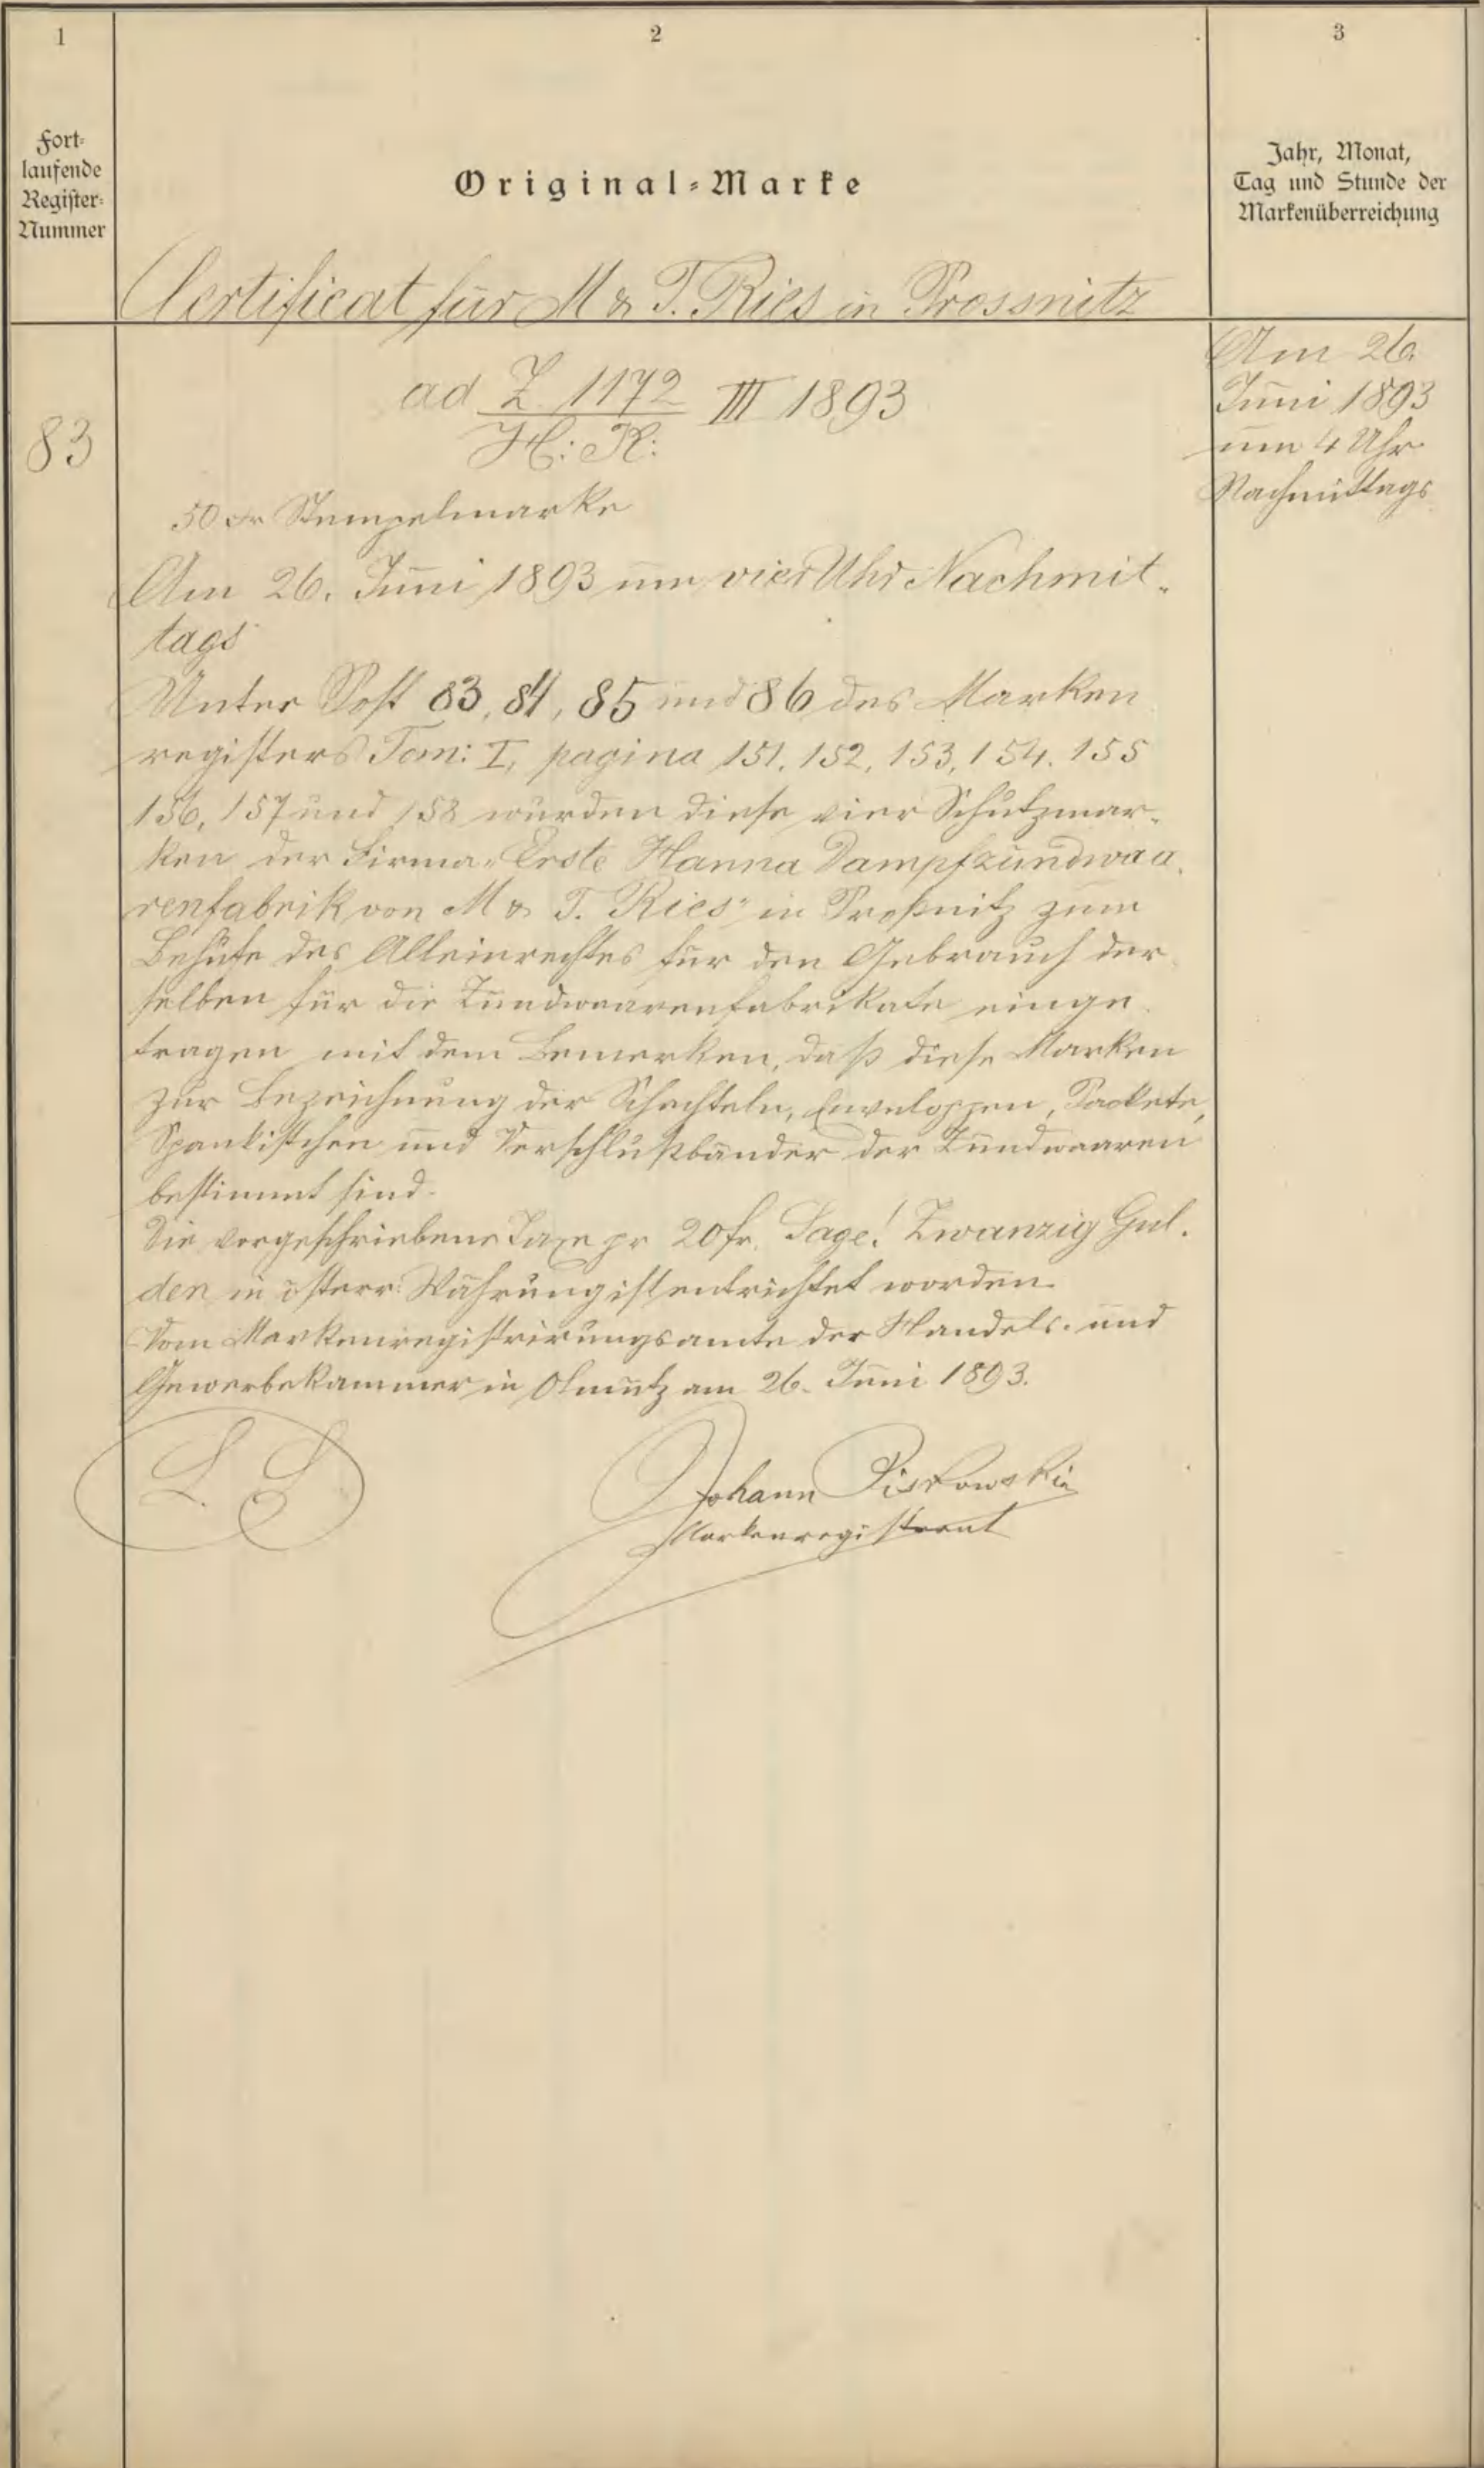 1
2
3
Fort-
laufende
Register-
Nummer
Original-Marke
Jahr, Monat,
Tag und Stunde der
Markenüberreichung
Certificat für M & J. Ries in Prossnitz
83
ad Z 1172 III 1893
H: K:
Am 26.
Juni 1893
um 4 Uhr
Nachmittags
50 kr Stempelmarke
Am 26. Juni 1893 um vier Uhr Nachmit-
tags
Unter Post 83, 84, 85 und 86 des Marken
registers Tom: I, pagina 151, 152, 153, 154. 155
156, 157 und 158 wurden diese vier Schutzmar-
ken der Firma „Erste Hanna Dampfzündwaa-
renfabrik von M & J. Ries" in Proßnitz zum
Behufe des Alleinrechtes für den Gebrauch der
selben für die Zündwaarenfabrikate einge
tragen mit dem Bemerken, daß diese Marken
zur Bezeichnung der Schachteln, Enveloppen, Packete,
Spankistchen und Verschlußbänder der Zündwaaren
bestimmt sind.
Die vorgeschriebene Taxe pr 20 fr. Sage! Zwanzig Gul-
den in österr: Währung ist entrichtet worden.
Vom Markenregistrirungsamte der Handels- und
Gewerbekammer in Olmütz am 26. Juni 1893.
L. S.
Johann
Markenregistrant